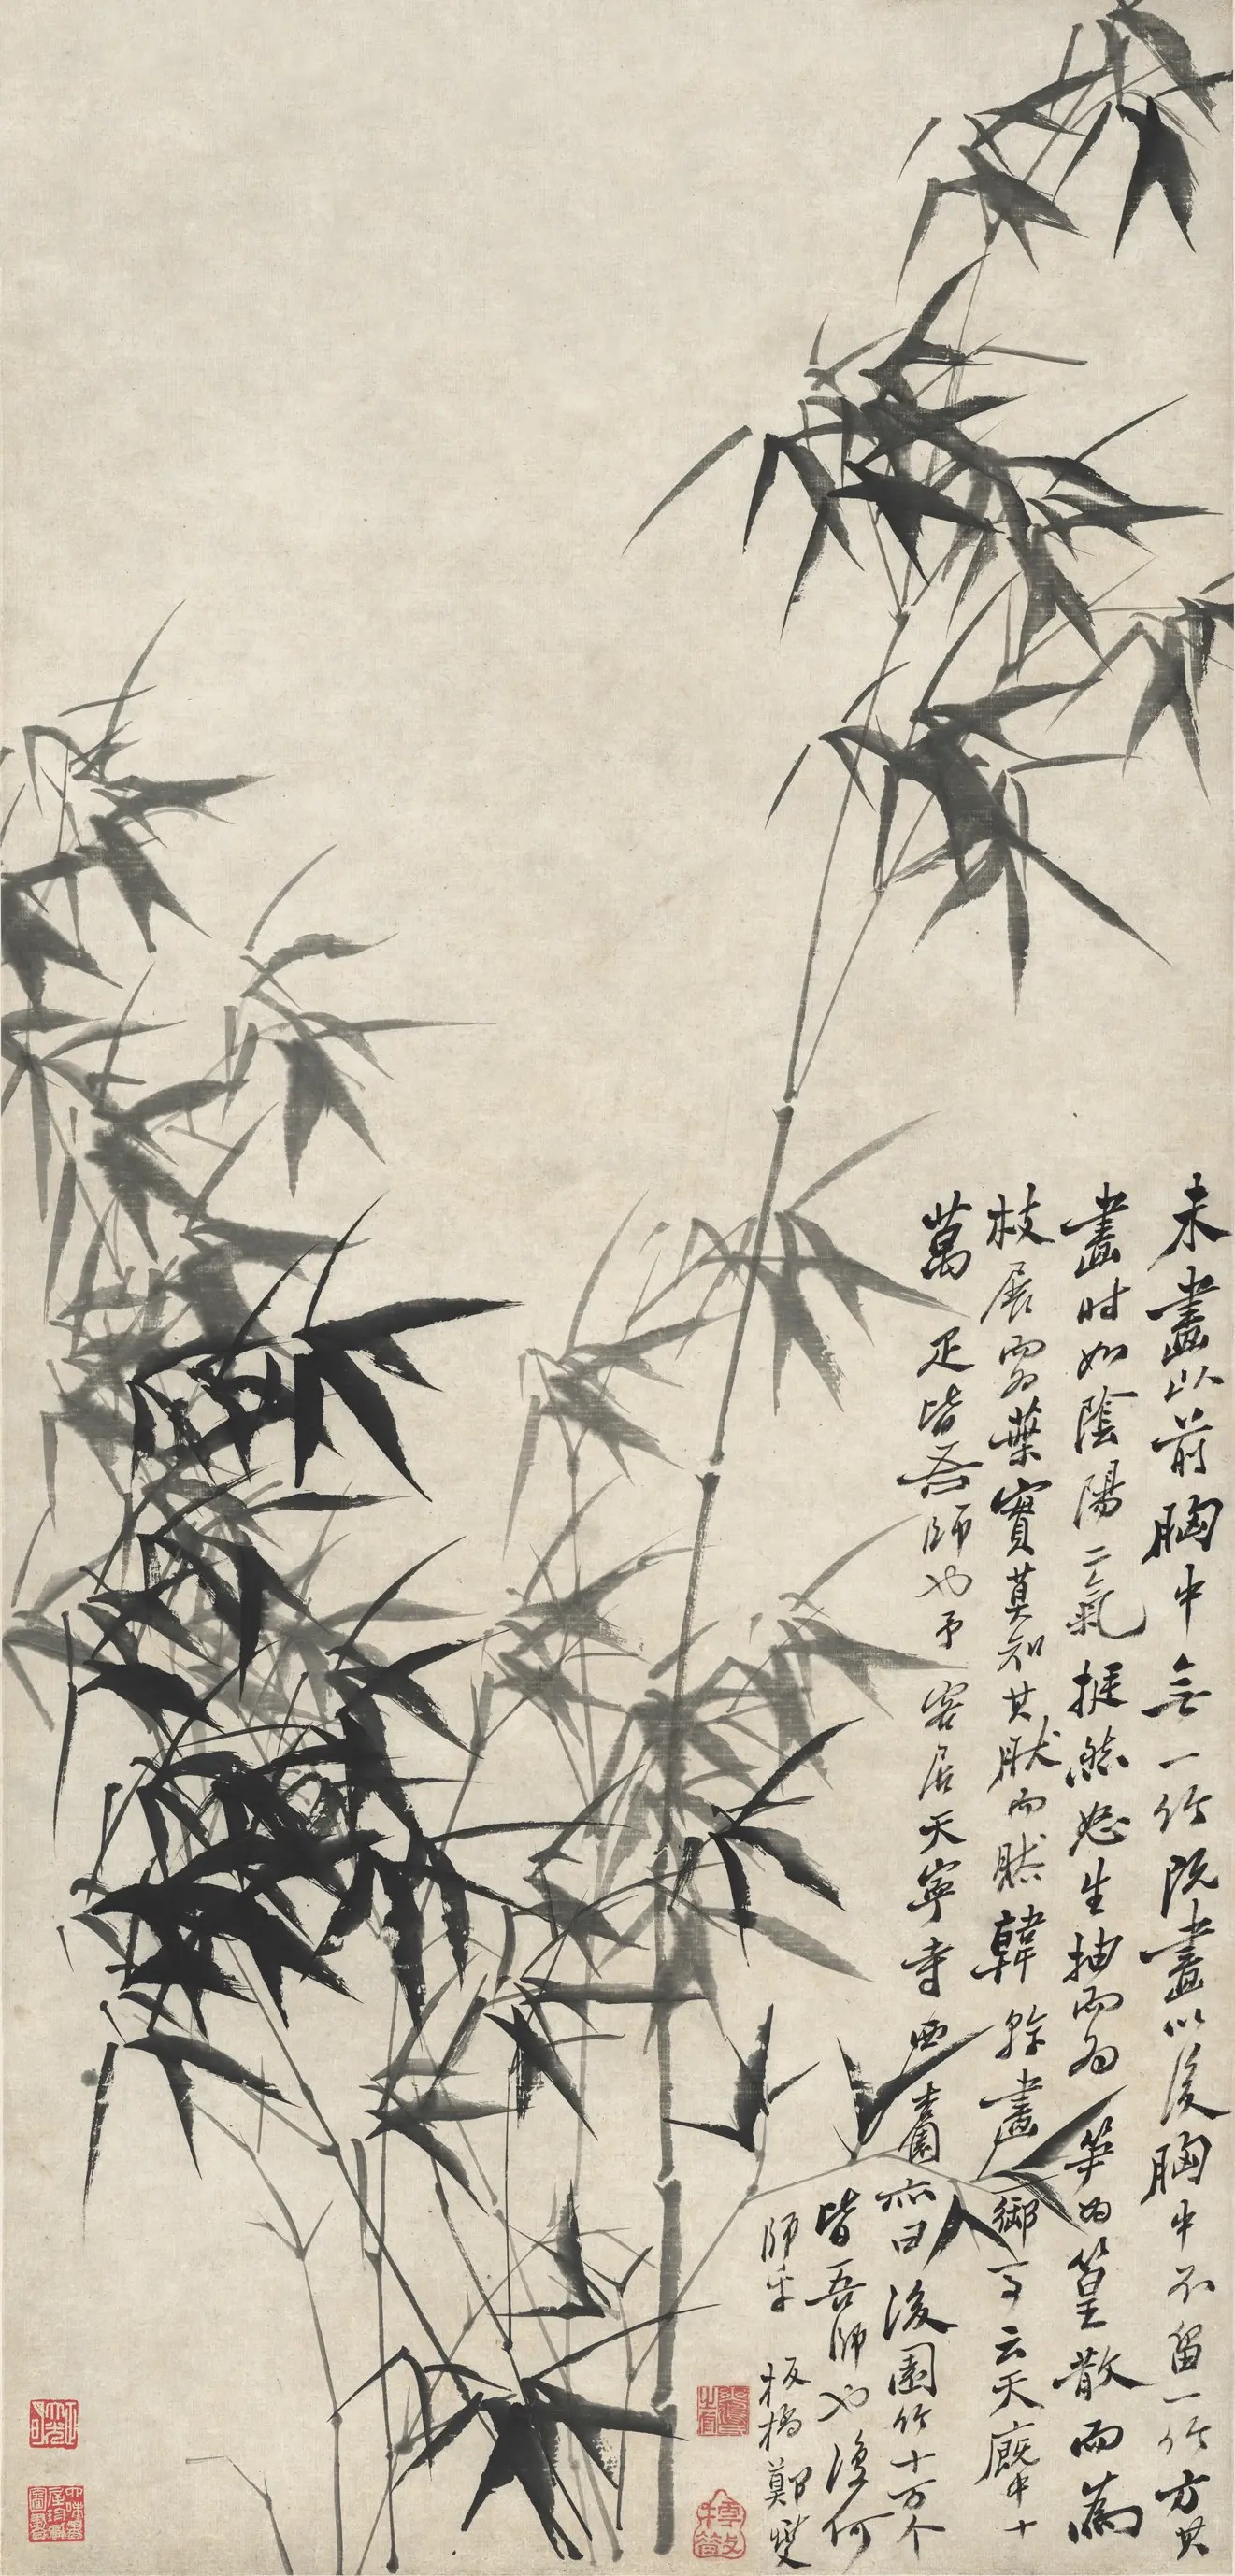 未畫以前胸中無一竹既畫以後胸中不留一竹方其
畫时如陰陽二氣挺然怒生抽而為笋為篁散而為
枝展而為葉實莫知其然而然韓幹畫御馬云天廐中十
萬疋皆吾師也予客居天寧寺西杏園亦曰後園竹十万个
皆吾師也復何
師乎 板橋鄭燮